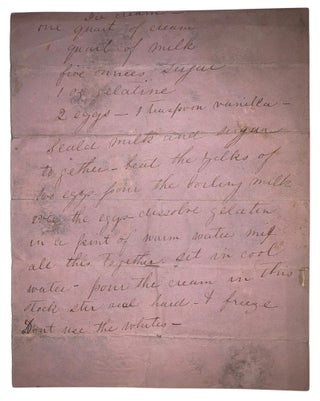 Ice cream —
one quart of cream
1 quart of milk
five ounces sugar
1 oz gelatine
2 eggs — 1 teaspoon vanilla —
Scald milk and sugar
together — beat the yelks of
two eggs pour the boiling milk
over the eggs dissolve gelatin
in a pint of warm water mix
all this together set in cool
water — pour the cream in this
stock stir and hard — & freeze
Dont use the whites —